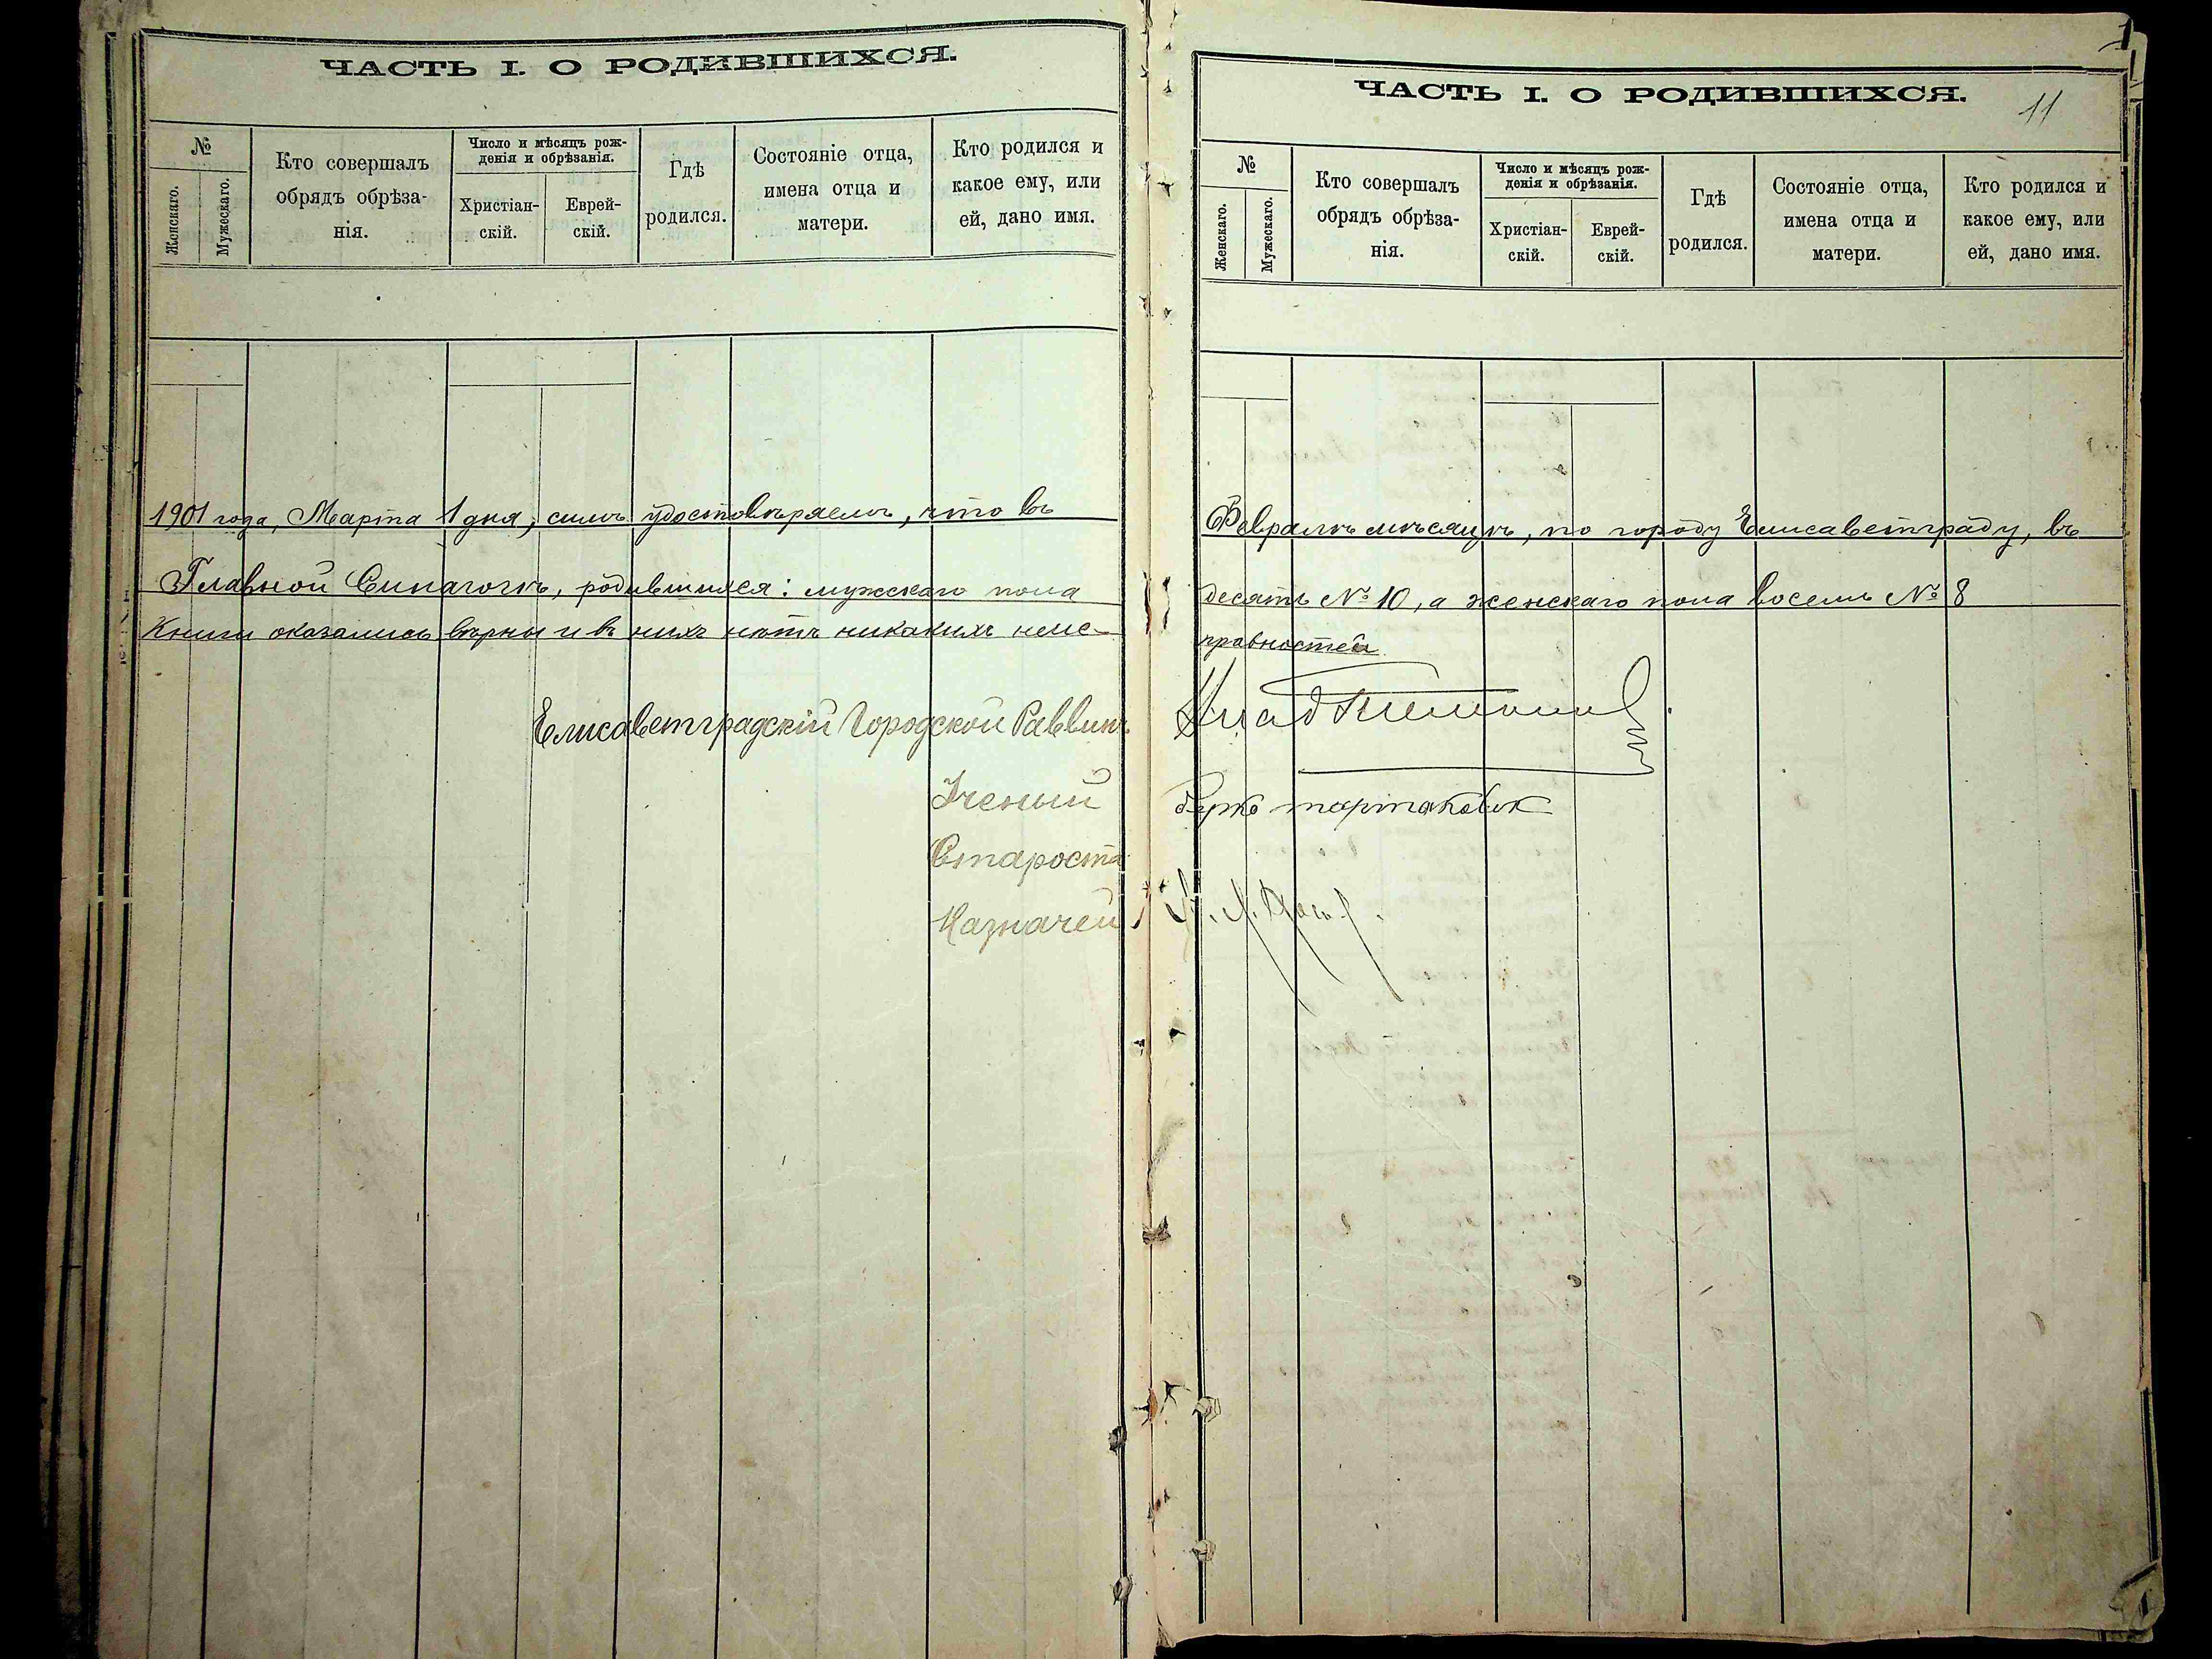 ЧАСТЬ I. О РОДИВШИХСЯ.
№
Женскаго.
Мужескаго.
Кто совершалъ
обрядъ обрѣза-
нія.
Число и мѣсяцъ рож-
денія и обрѣзанія.
Христіан-
скій.
Еврей-
скій.
Гдѣ
родился.
Состояніе отца,
имена отца и
матери.
Кто родился и
какое ему, или
ей, дано имя.
1901 года, Марта 1 дня, симъ удостовѣряемъ, что въ
Главной Синагогѣ, родившихся: мужскаго пола
Книги оказались вѣрны и въ нихъ нѣтъ никакихъ неис-
Елисаветградскій Городской Раввинъ
Ученый
Староста
Казначей
ЧАСТЬ I. О РОДИВШИХСЯ.
11
№
Женскаго.
Мужескаго.
Кто совершалъ
обрядъ обрѣза-
нія.
Число и мѣсяцъ рож-
денія и обрѣзанія.
Христіан-
скій.
Еврей-
скій.
Гдѣ
родился.
Состояніе отца,
имена отца и
матери.
Кто родился и
какое ему, или
ей, дано имя.
Февралѣ мѣсяцѣ, по городу Елисаветграду, въ
десять № 10, а женскаго пола восемь № 8
правностей